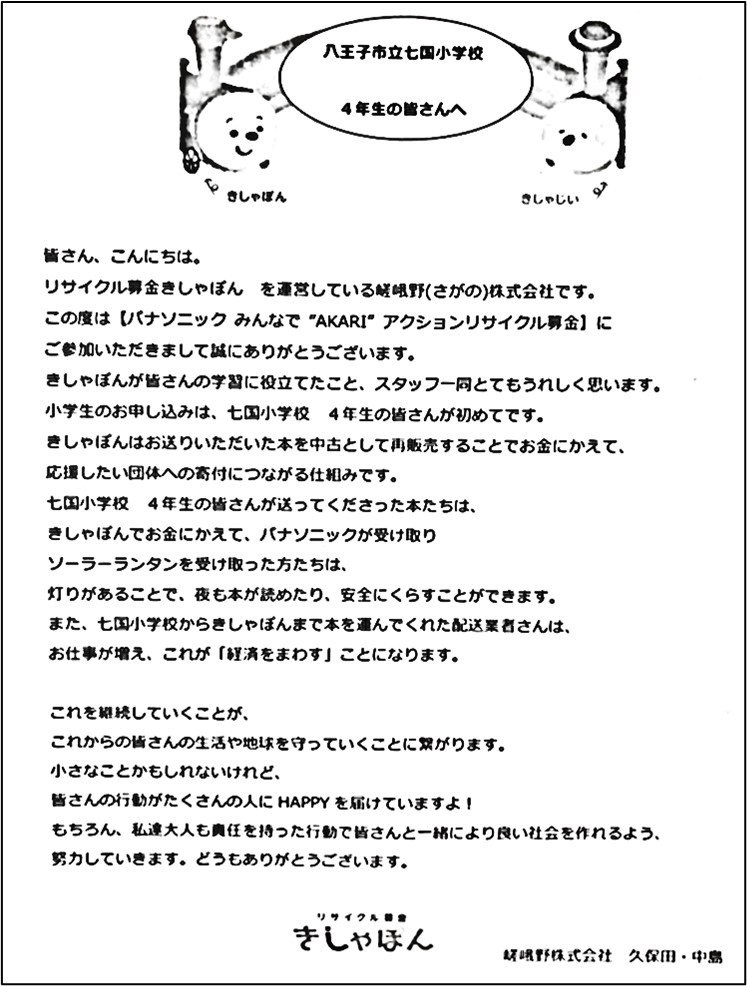 八王子市立七国小学校
４年生の皆さんへ
きしゃぽん
きしゃじい
皆さん、こんにちは。
リサイクル募金きしゃぽん　を運営している嵯峨野(さがの)株式会社です。
この度は【パナソニック みんなで “AKARI” アクションリサイクル募金】に
ご参加いただきまして誠にありがとうございます。
きしゃぽんが皆さんの学習に役立てたこと、スタッフ一同とてもうれしく思います。
小学生のお申し込みは、七国小学校　４年生の皆さんが初めてです。
きしゃぽんはお送りいただいた本を中古として再販売することでお金にかえて、
応援したい団体への寄付につながる仕組みです。
七国小学校　４年生の皆さんが送ってくださった本たちは、
きしゃぽんでお金にかえて、パナソニックが受け取り
ソーラーランタンを受け取った方たちは、
灯りがあることで、夜も本が読めたり、安全にくらすことができます。
また、七国小学校からきしゃぽんまで本を運んでくれた配送業者さんは、
お仕事が増え、これが「経済をまわす」ことになります。
これを継続していくことが、
これからの皆さんの生活や地球を守っていくことに繋がります。
小さなことかもしれないけれど、
皆さんの行動がたくさんの人に HAPPY を届けていますよ！
もちろん、私達大人も責任を持った行動で皆さんと一緒により良い社会を作れるよう、
努力していきます。どうもありがとうございます。
リサイクル募金
きしゃぽん
嵯峨野株式会社　久保田・中島